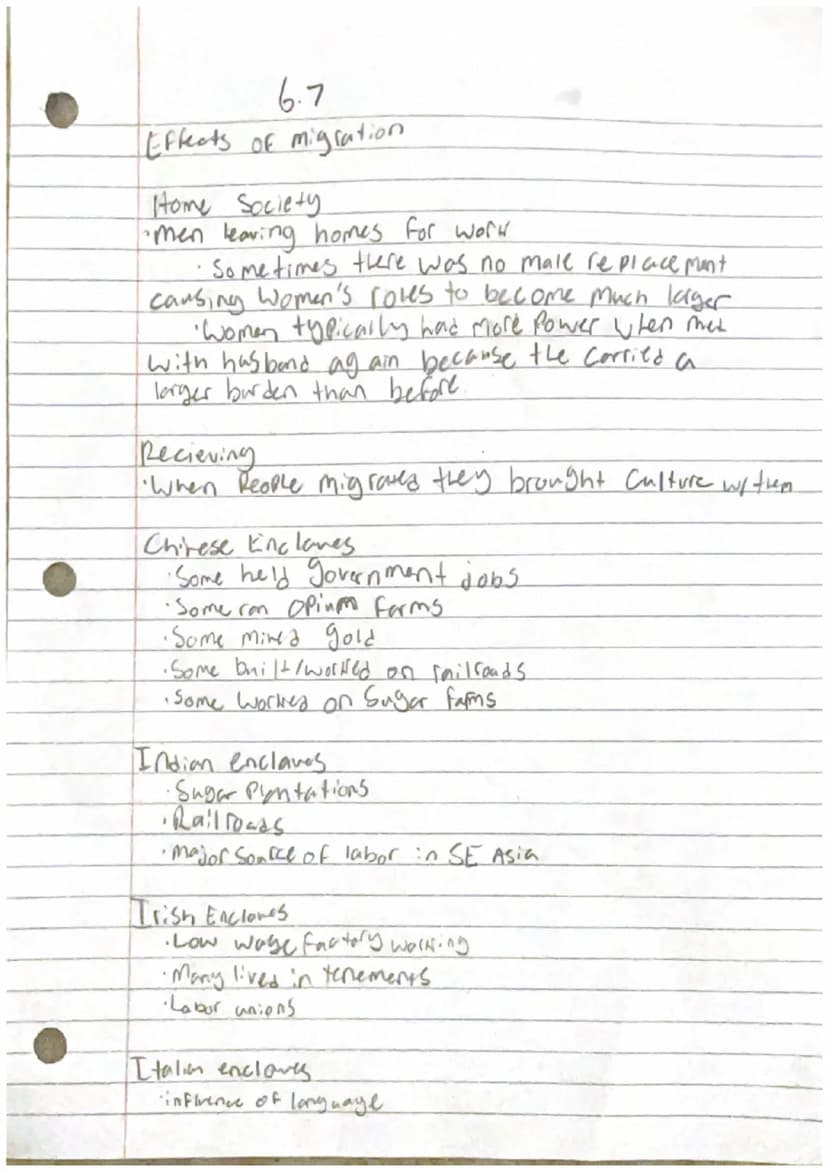 6.7
Effects of migration
Home Society
·Men leaving homes for work
·Sometimes there was no male replacement
causing Women's roles to become much larger
·Women typically had more Power when met
with husband again because the carried a
larger burden than before.
Recieving
·When People migrated they brought Culture w/ them
Chinese Enclaves
·Some held government jobs
·Some ran opium farms
·Some mined gold
·Some built/worked on railroads
·Some worked on Sugar farms
Indian enclaves
·Sugar Plntations
·Railroads
·Major source of labor in SE Asia
Irish Enclaves
·Low wage factory working
·Many lived in tenements
·Labor unions
Italian enclaves
·influence of language